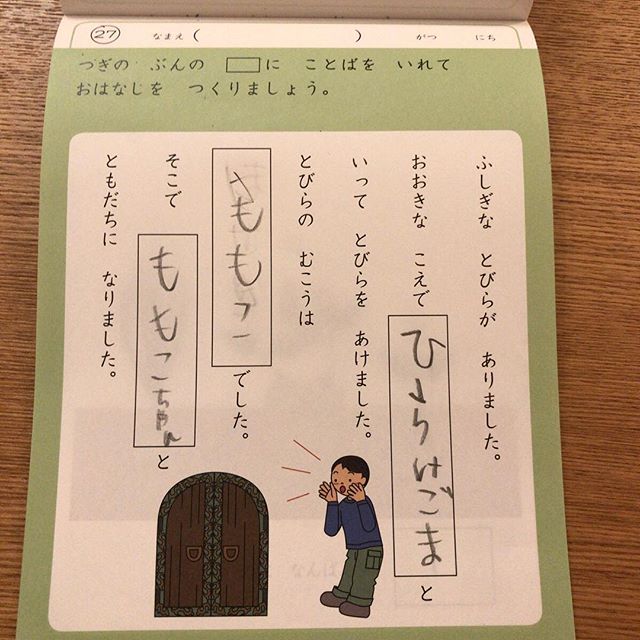 27 なまえ( ) がつ にち
つぎの ぶんの □に ことばを いれて
おはなしを つくりましょう。
ふしぎな とびらが ありました。
おおきな こえで ひらけごま と
いって とびらを あけました。
とびらの むこうは
ももこ でした。
そこで ももこちゃん と
ともだちに なりました。